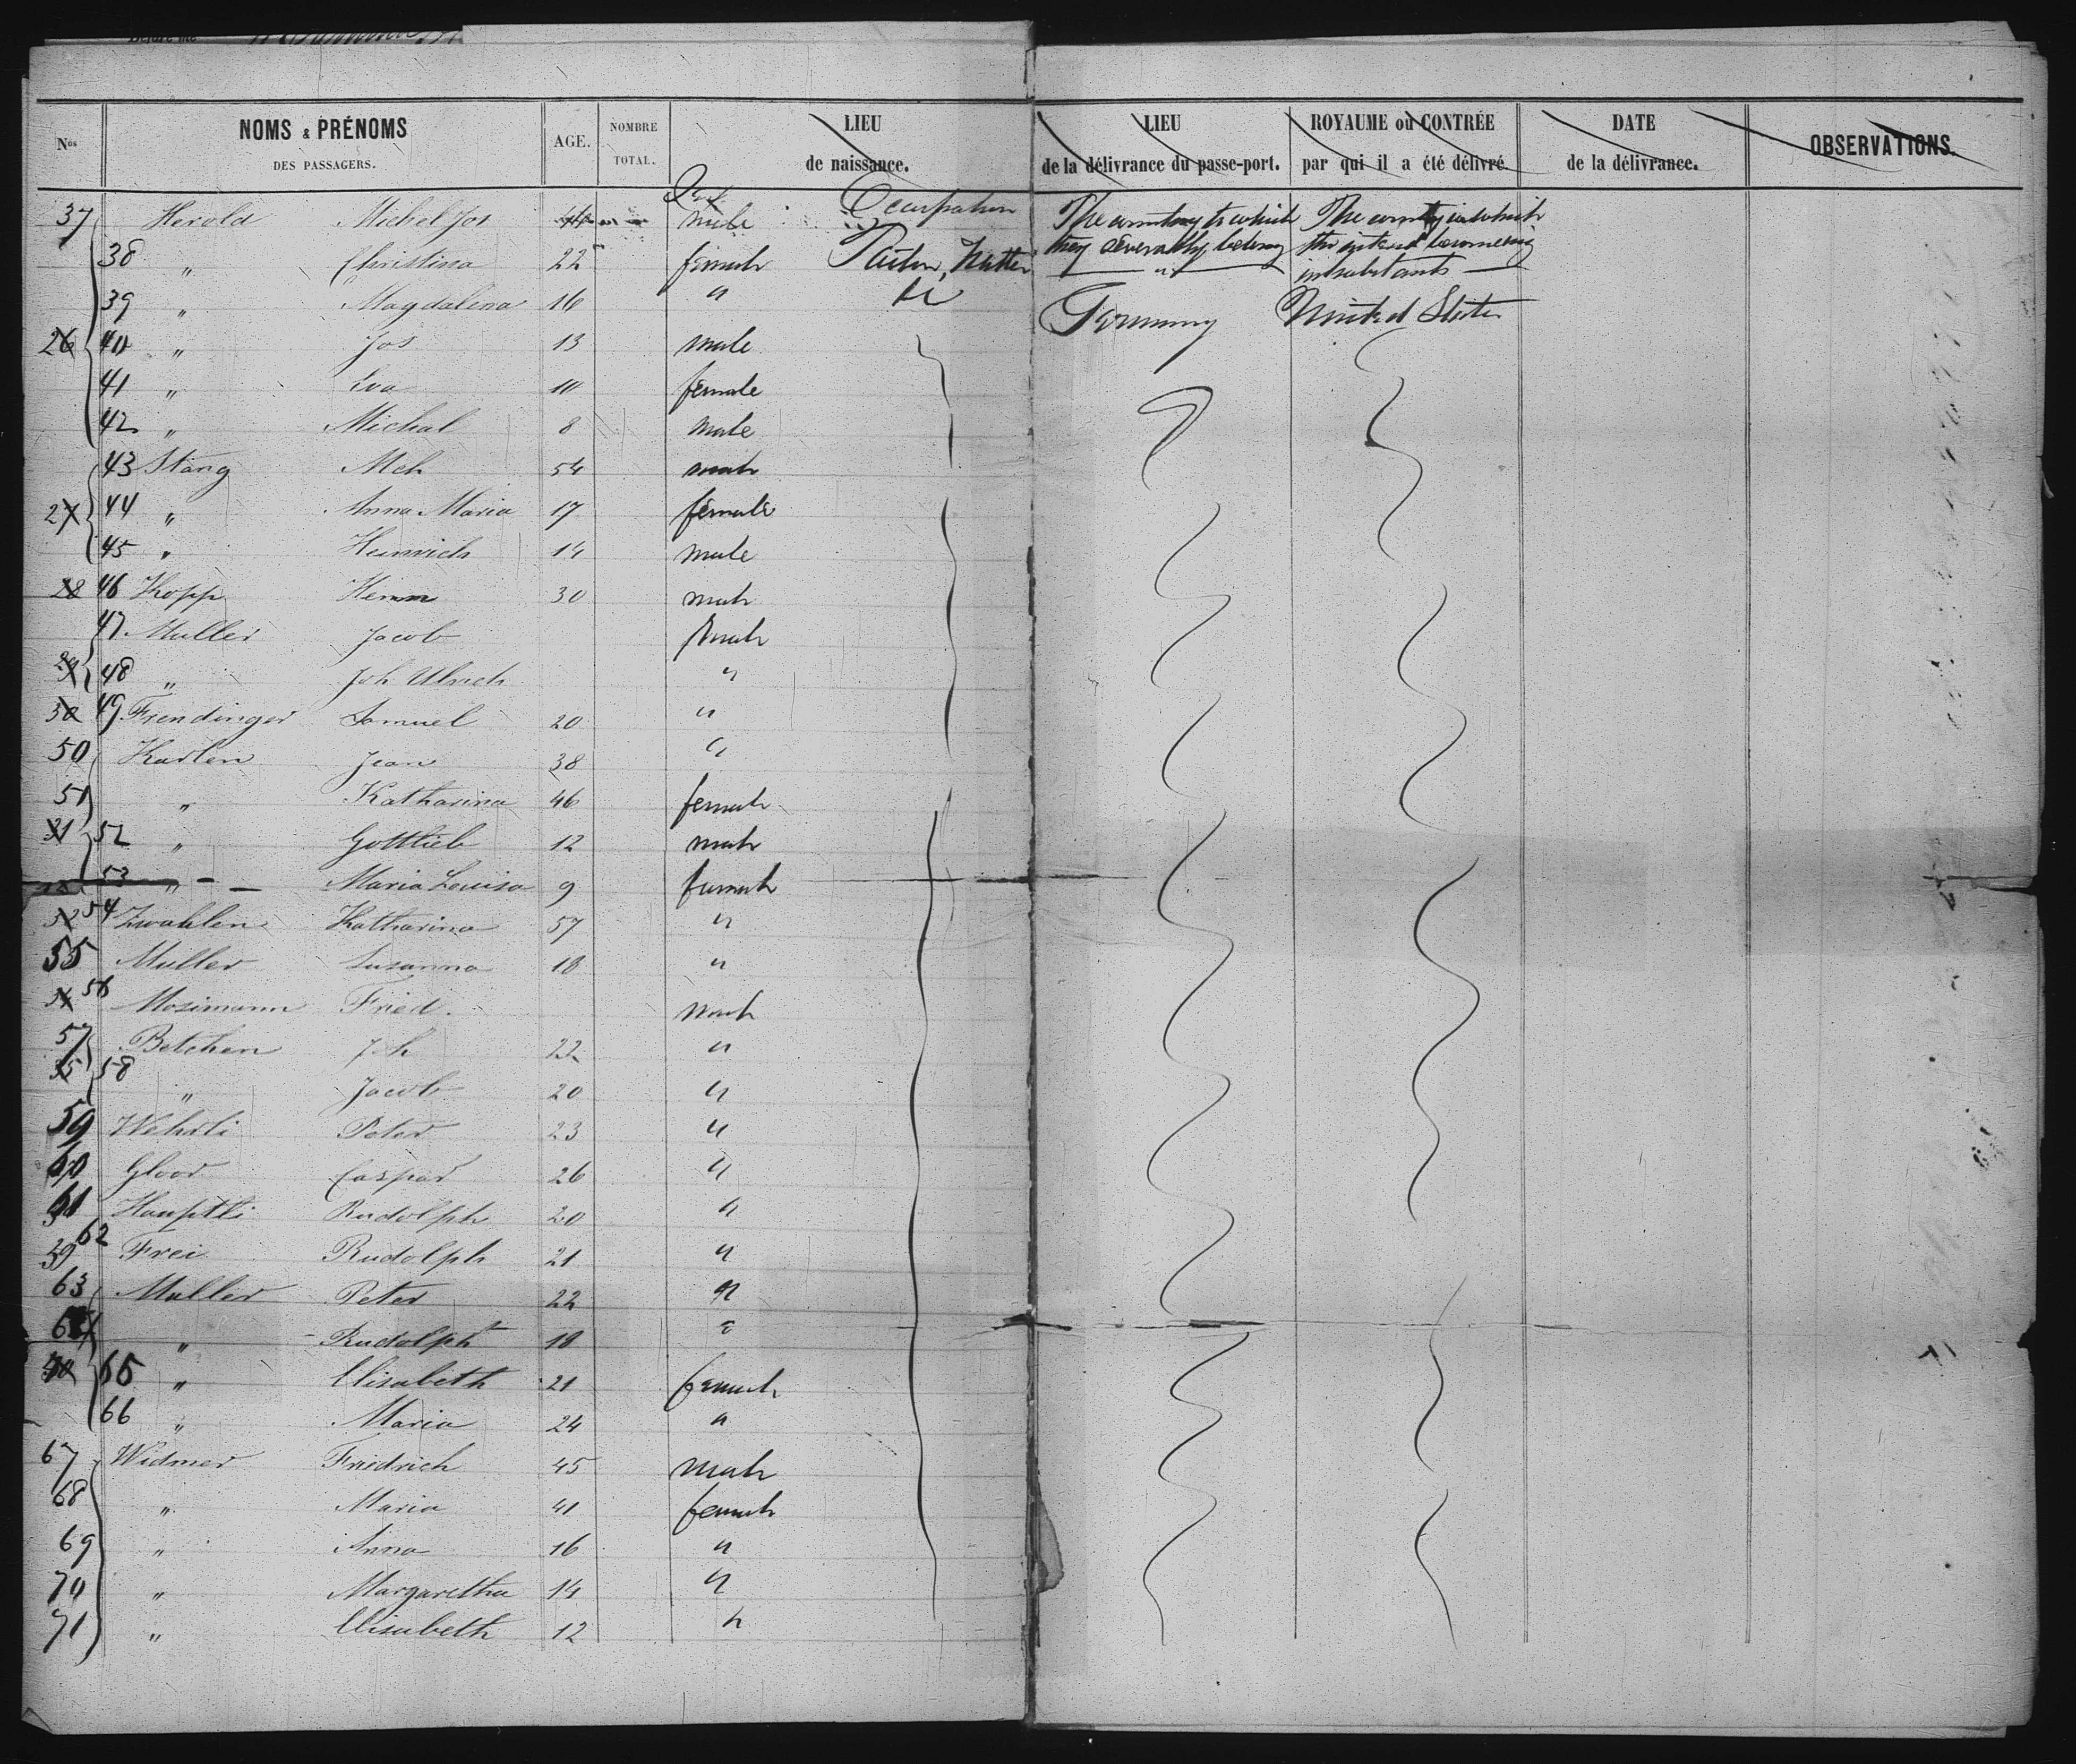 Nos NOMS & PRÉNOMS DES PASSAGERS. AGE. NOMBRE TOTAL. LIEU de naissance. LIEU de la délivrance du passe-port. ROYAUME ou CONTRÉE par qui il a été délivré. DATE de la délivrance. OBSERVATIONS.
Sex Occupation The country to which they severally belong The country in which the intend becoming inhabitants
37 Herold Michel Jos male
38 " Christina 22 female
39 " Magdalena 16 " Germany United States
26 40 " Jos 13 male
41 " Eva 10 female
42 " Michal 8 male
43 Stang Mch 54 male
27 44 " Anna Maria 17 female
45 " Heinrich 14 male
28 46 Kopp Herm 30 male
47 Muller Jacob male
29 48 " Joh Ulrich "
30 49 Frendinger Samuel 20 "
50 Karlen Jean 38 "
51 " Katharina 46 female
31 52 " Gottlieb 12 male
53 " Maria Louisa 9 female
32 54 Zwahlen Katharina 57 "
55 Muller Susanna 18 "
34 56 Mosimann Fried. male
57 Betchen Joh 22 "
35 58 " Jacob 20 "
59 Wehrli Peter 23 "
60 Gloor Caspar 26 "
61 Hauptli Rudolph 20 "
39 62 Frei Rudolph 21 "
63 Muller Peter 22 "
64 " Rudolph 18 "
40 65 " Elisabeth 21 female
66 " Maria 24 "
67 Widmer Fridrich 45 male
68 " Maria 41 female
69 " Anna 16 "
70 " Margaretha 14 "
71 " Elisabeth 12 "